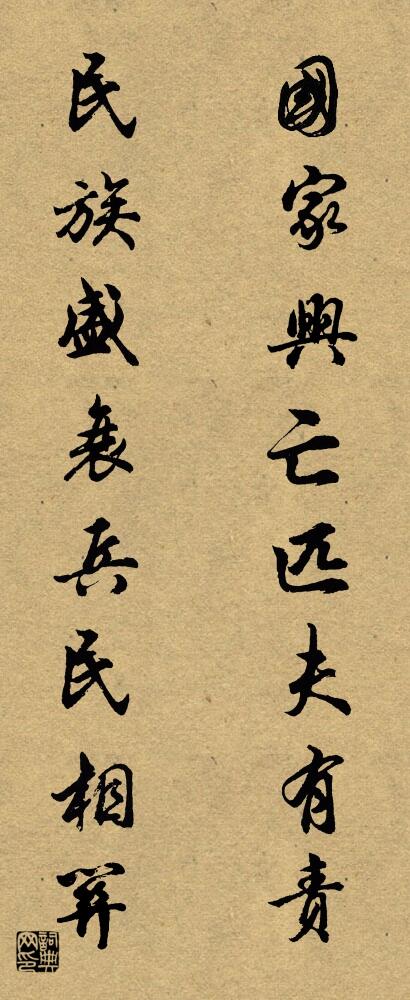 國家興亡匹夫有責
民族盛衰兵民相關
詞典网印